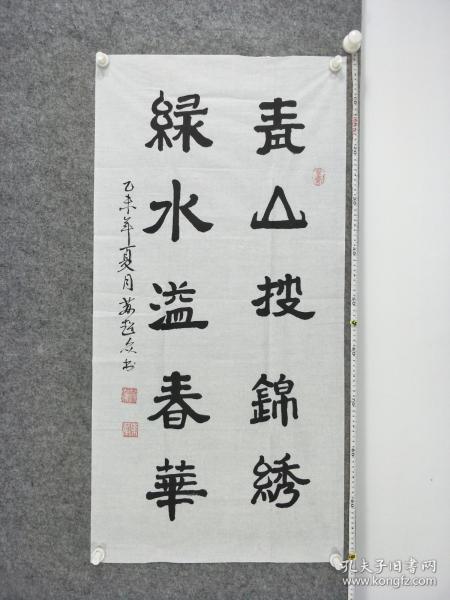 青山披錦綉
緑水溢春華
乙未年夏月苏书
孔夫子旧书网
www.kongfz.com